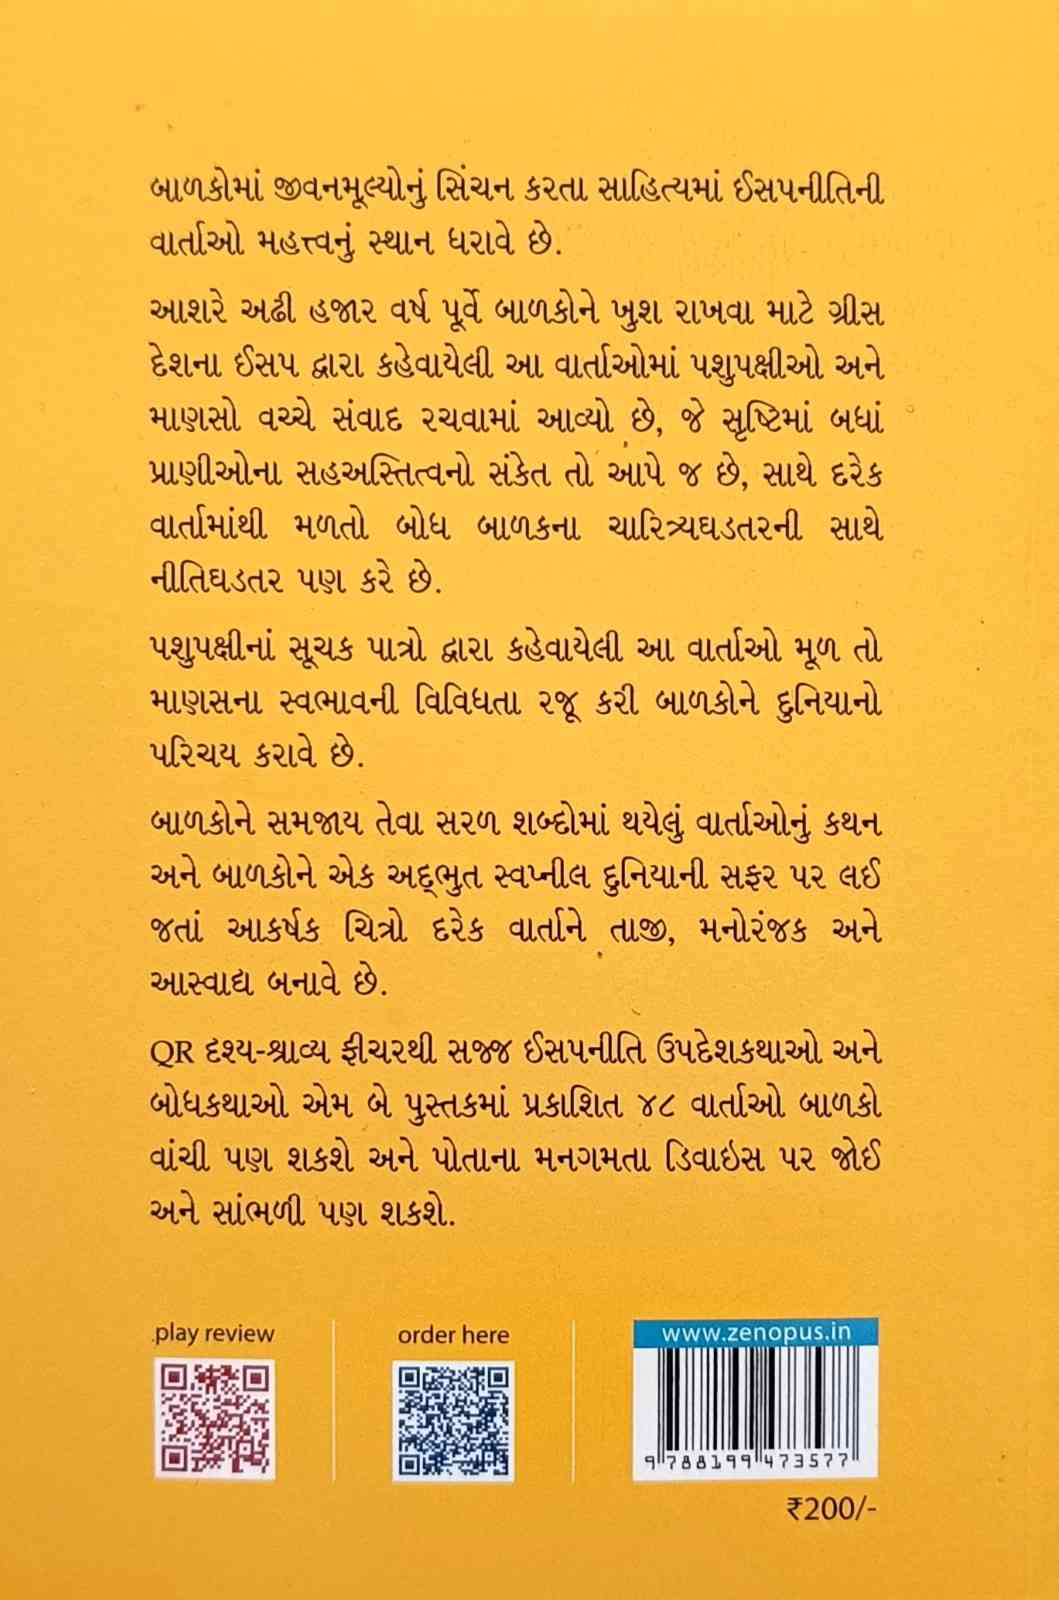 બાળકોમાં જીવનમૂલ્યોનું સિંચન કરતા સાહિત્યમાં ઈસપનીતિની
વાર્તાઓ મહત્ત્વનું સ્થાન ધરાવે છે.
આશરે અઢી હજાર વર્ષ પૂર્વે બાળકોને ખુશ રાખવા માટે ગ્રીસ
દેશના ઈસપ દ્વારા કહેવાયેલી આ વાર્તાઓમાં પશુપક્ષીઓ અને
માણસો વચ્ચે સંવાદ રચવામાં આવ્યો છે, જે સૃષ્ટિમાં બધાં
પ્રાણીઓના સહઅસ્તિત્વનો સંકેત તો આપે જ છે, સાથે દરેક
વાર્તામાંથી મળતો બોધ બાળકના ચારિત્ર્યઘડતરની સાથે
નીતિઘડતર પણ કરે છે.
પશુપક્ષીનાં સૂચક પાત્રો દ્વારા કહેવાયેલી આ વાર્તાઓ મૂળ તો
માણસના સ્વભાવની વિવિધતા રજૂ કરી બાળકોને દુનિયાનો
પરિચય કરાવે છે.
બાળકોને સમજાય તેવા સરળ શબ્દોમાં થયેલું વાર્તાઓનું કથન
અને બાળકોને એક અદ્‌ભુત સ્વપ્નીલ દુનિયાની સફર પર લઈ
જતાં આકર્ષક ચિત્રો દરેક વાર્તાને તાજી, મનોરંજક અને
આસ્વાદ્ય બનાવે છે.
QR દૃશ્ય-શ્રાવ્ય ફીચરથી સજ્જ ઈસપનીતિ ઉપદેશકથાઓ અને
બોધકથાઓ એમ બે પુસ્તકમાં પ્રકાશિત ૪૮ વાર્તાઓ બાળકો
વાંચી પણ શકશે અને પોતાના મનગમતા ડિવાઇસ પર જોઈ
અને સાંભળી પણ શકશે.
play review
order here
www.zenopus.in
9 788199 473577
₹200/-